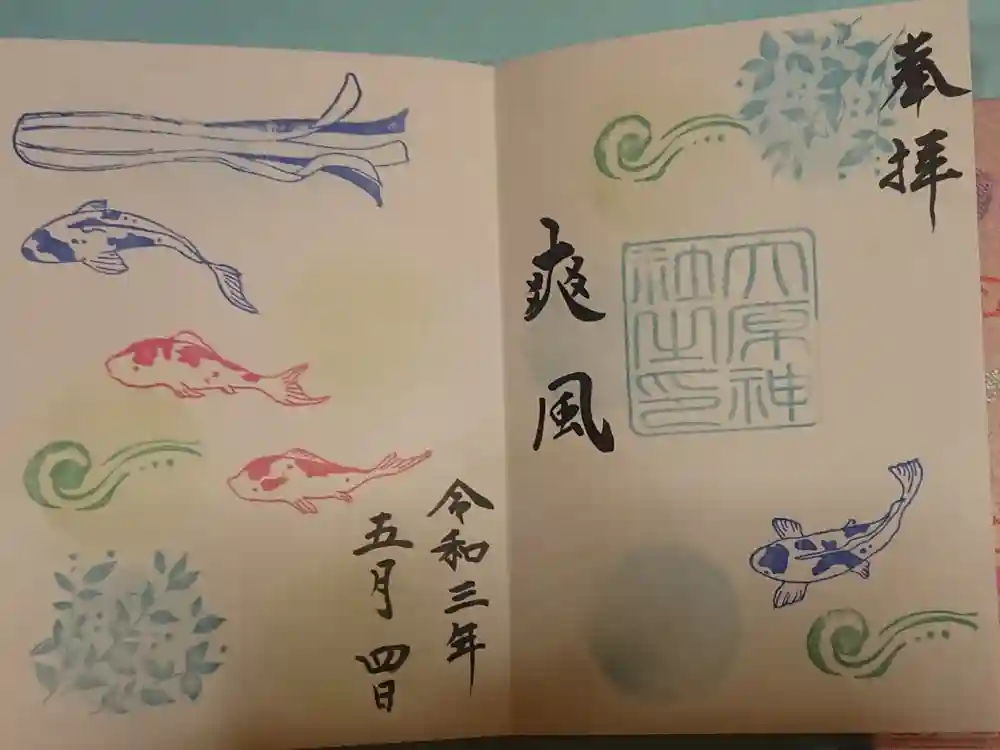 奉拝
大原神
社之印
爽風
令和三年
五月四日